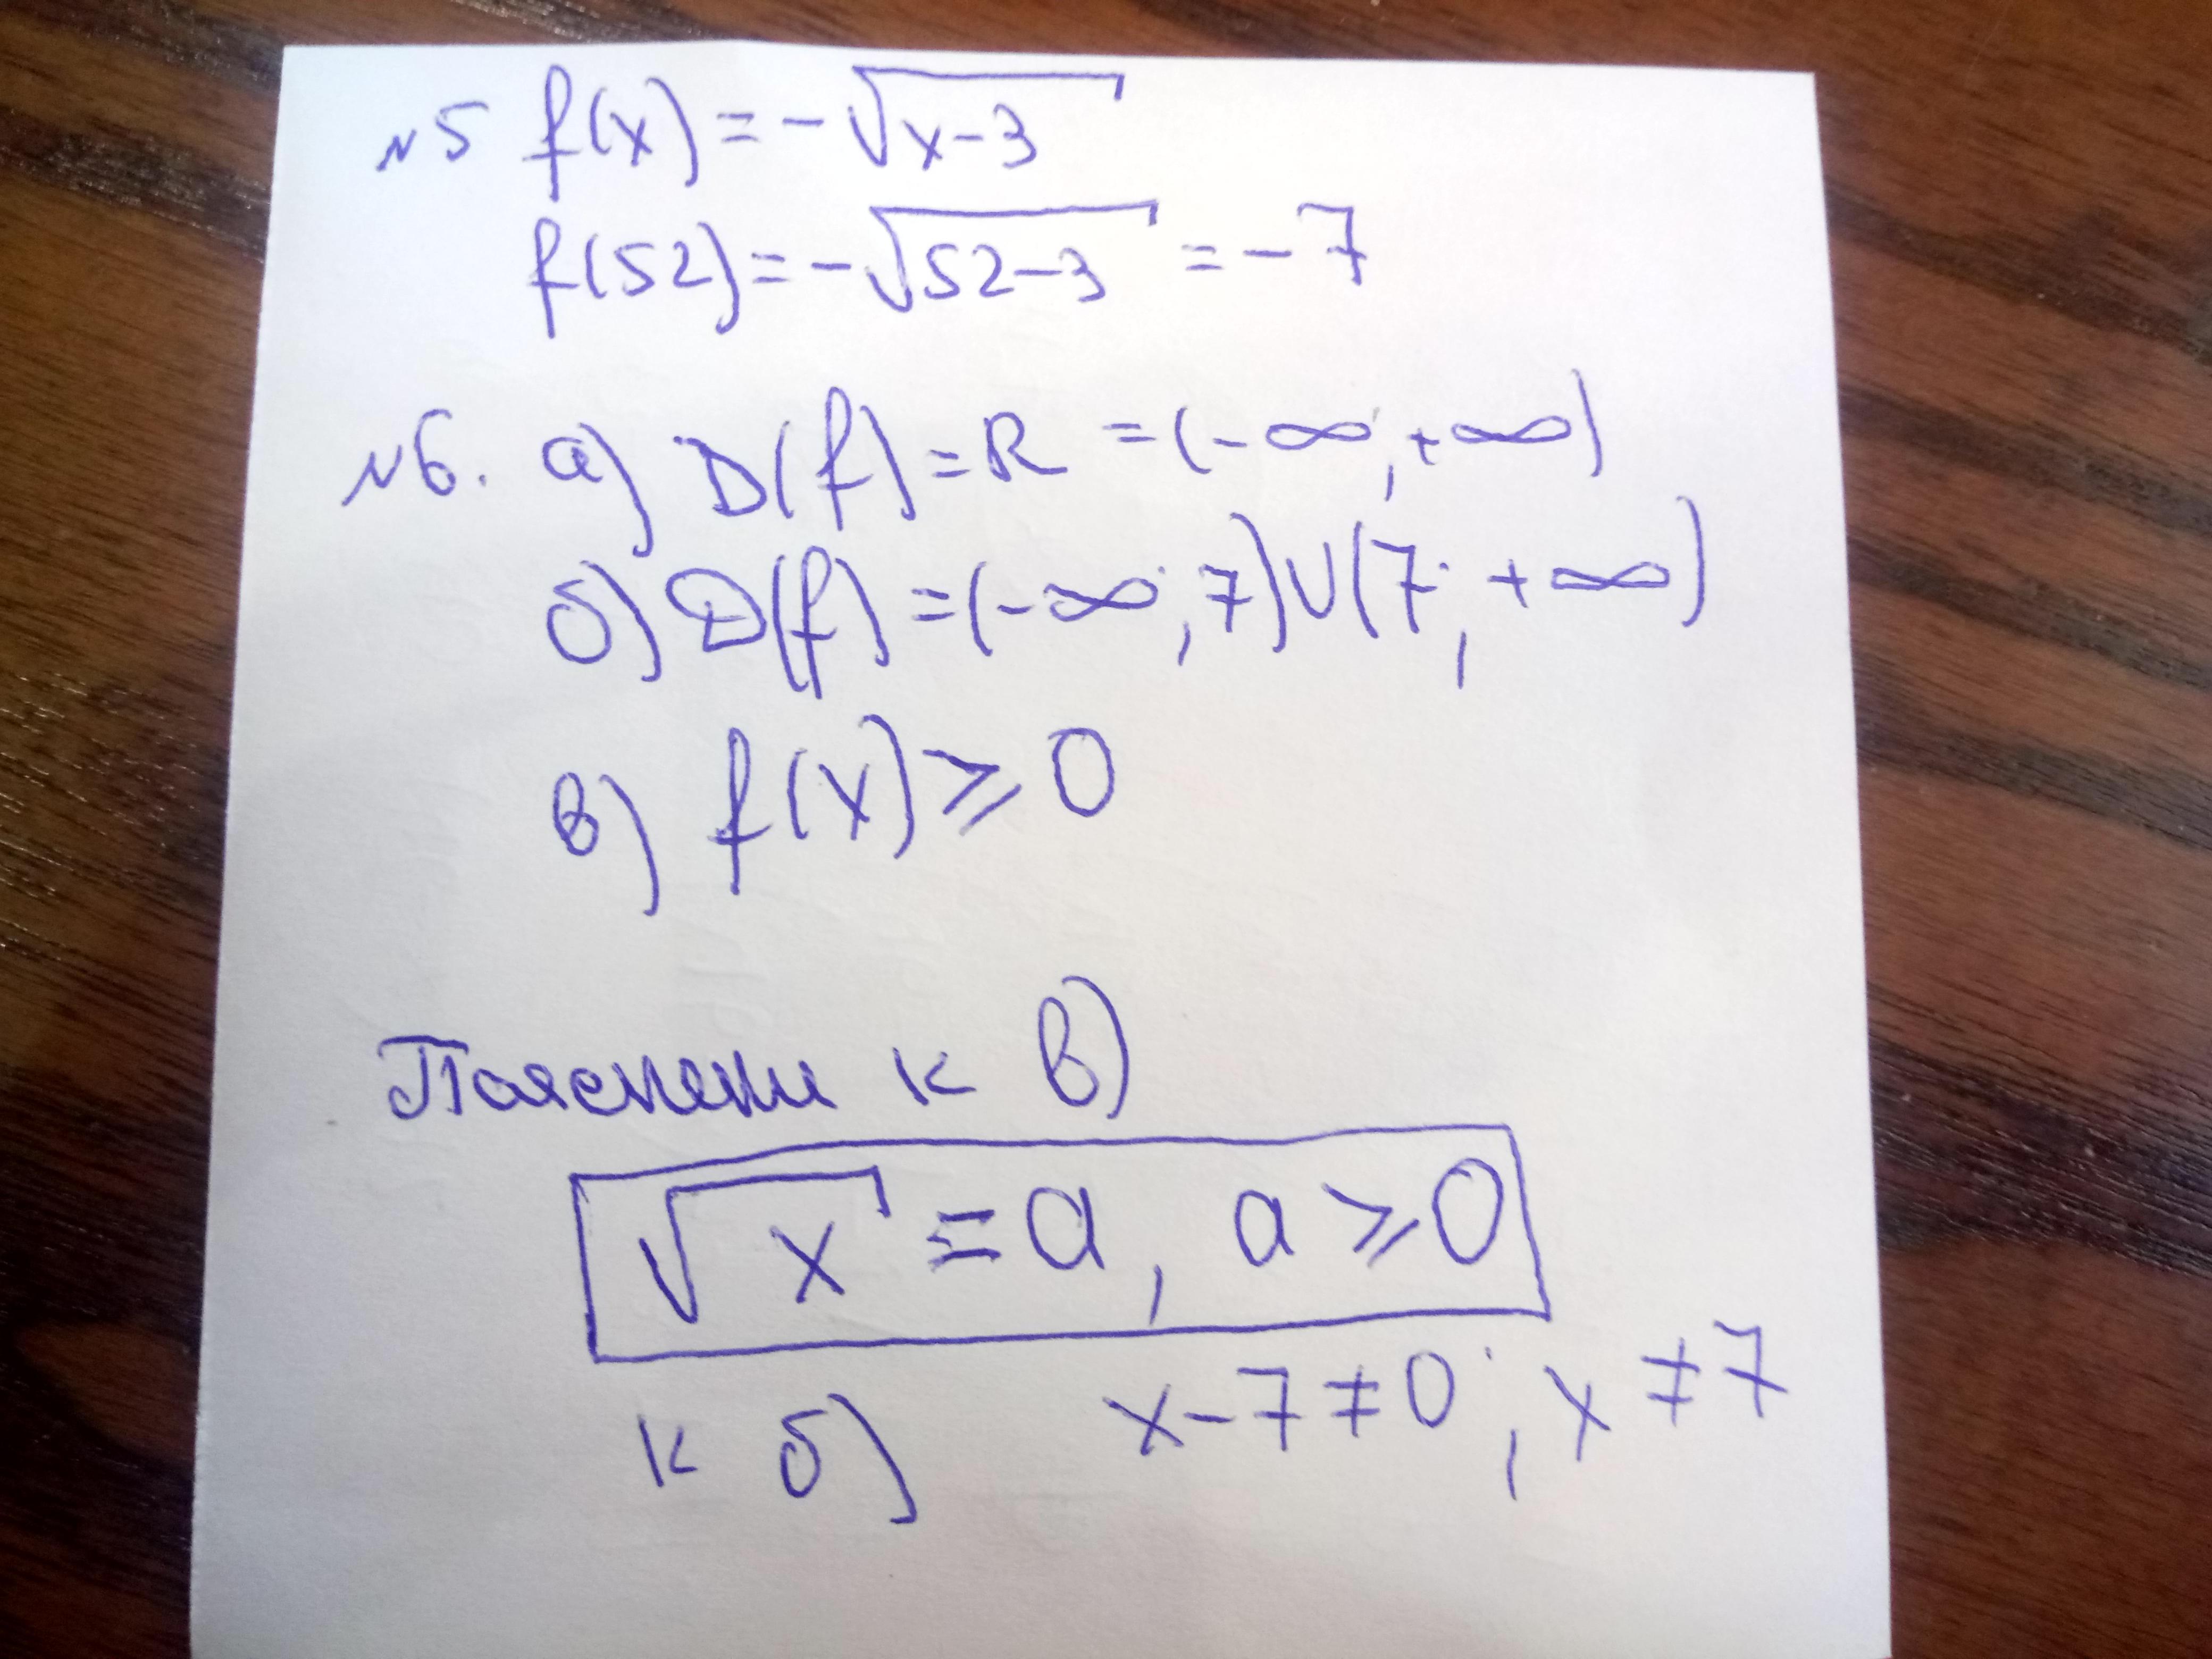 №5 f(x) = -√(x-3)
f(52) = -√(52-3) = -7
№6. а) D(f) = R = (-∞; +∞)
б) D(f) = (-∞; 7) ∪ (7; +∞)
в) f(x) ⩾ 0
к в)
√x = a, a ⩾ 0
к б) x-7 ≠ 0; x ≠ 7